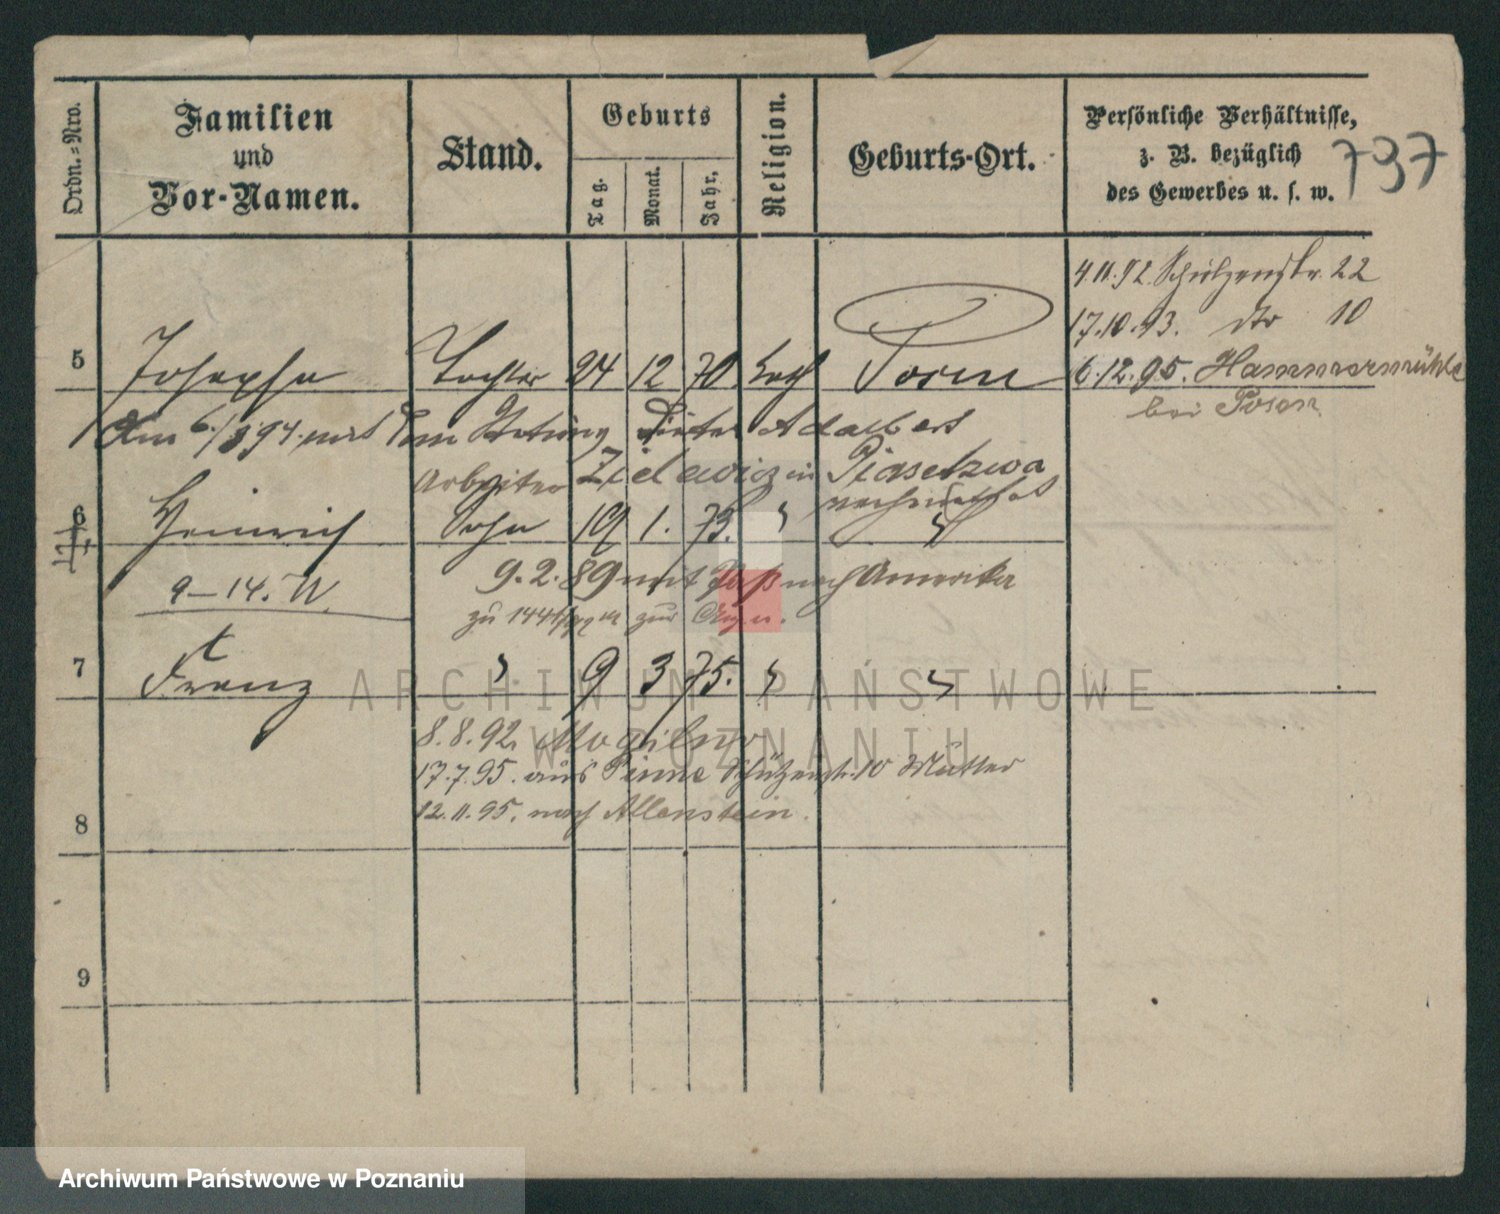 Ordn.-Nro.
Familien
und
Vor-Namen.
Stand.
Geburts
Tag.
Monat.
Jahr.
Religion.
Geburts-Ort.
Persönliche Verhältnisse,
z. B. bezüglich
des Gewerbes u. s. w.
737
4.11.92. Schützenstr. 22
17.10.93. dto 10
5 Josepha Tochter 24 12 70 kath Posen
6.12.95. Hammermühle
bei Posen
Am 6./ 94. mit dem Adalbert
Arbeiter Zielewicz in Piasetzwa
verheirathet
6 Heinrich Sohn 19 1. 73. " "
9–14. W. 9.2.89 mit Paß nach Amerika
zu zur
7 Franz " 9 3 75. " "
8.8.92. Mogilno
17.7.95. aus Pinne Schützenstr. 10 Mutter
12.11.95. nach Allenstein.
8
9
ARCHIWUM PAŃSTWOWE
W POZNANIU
Archiwum Państwowe w Poznaniu